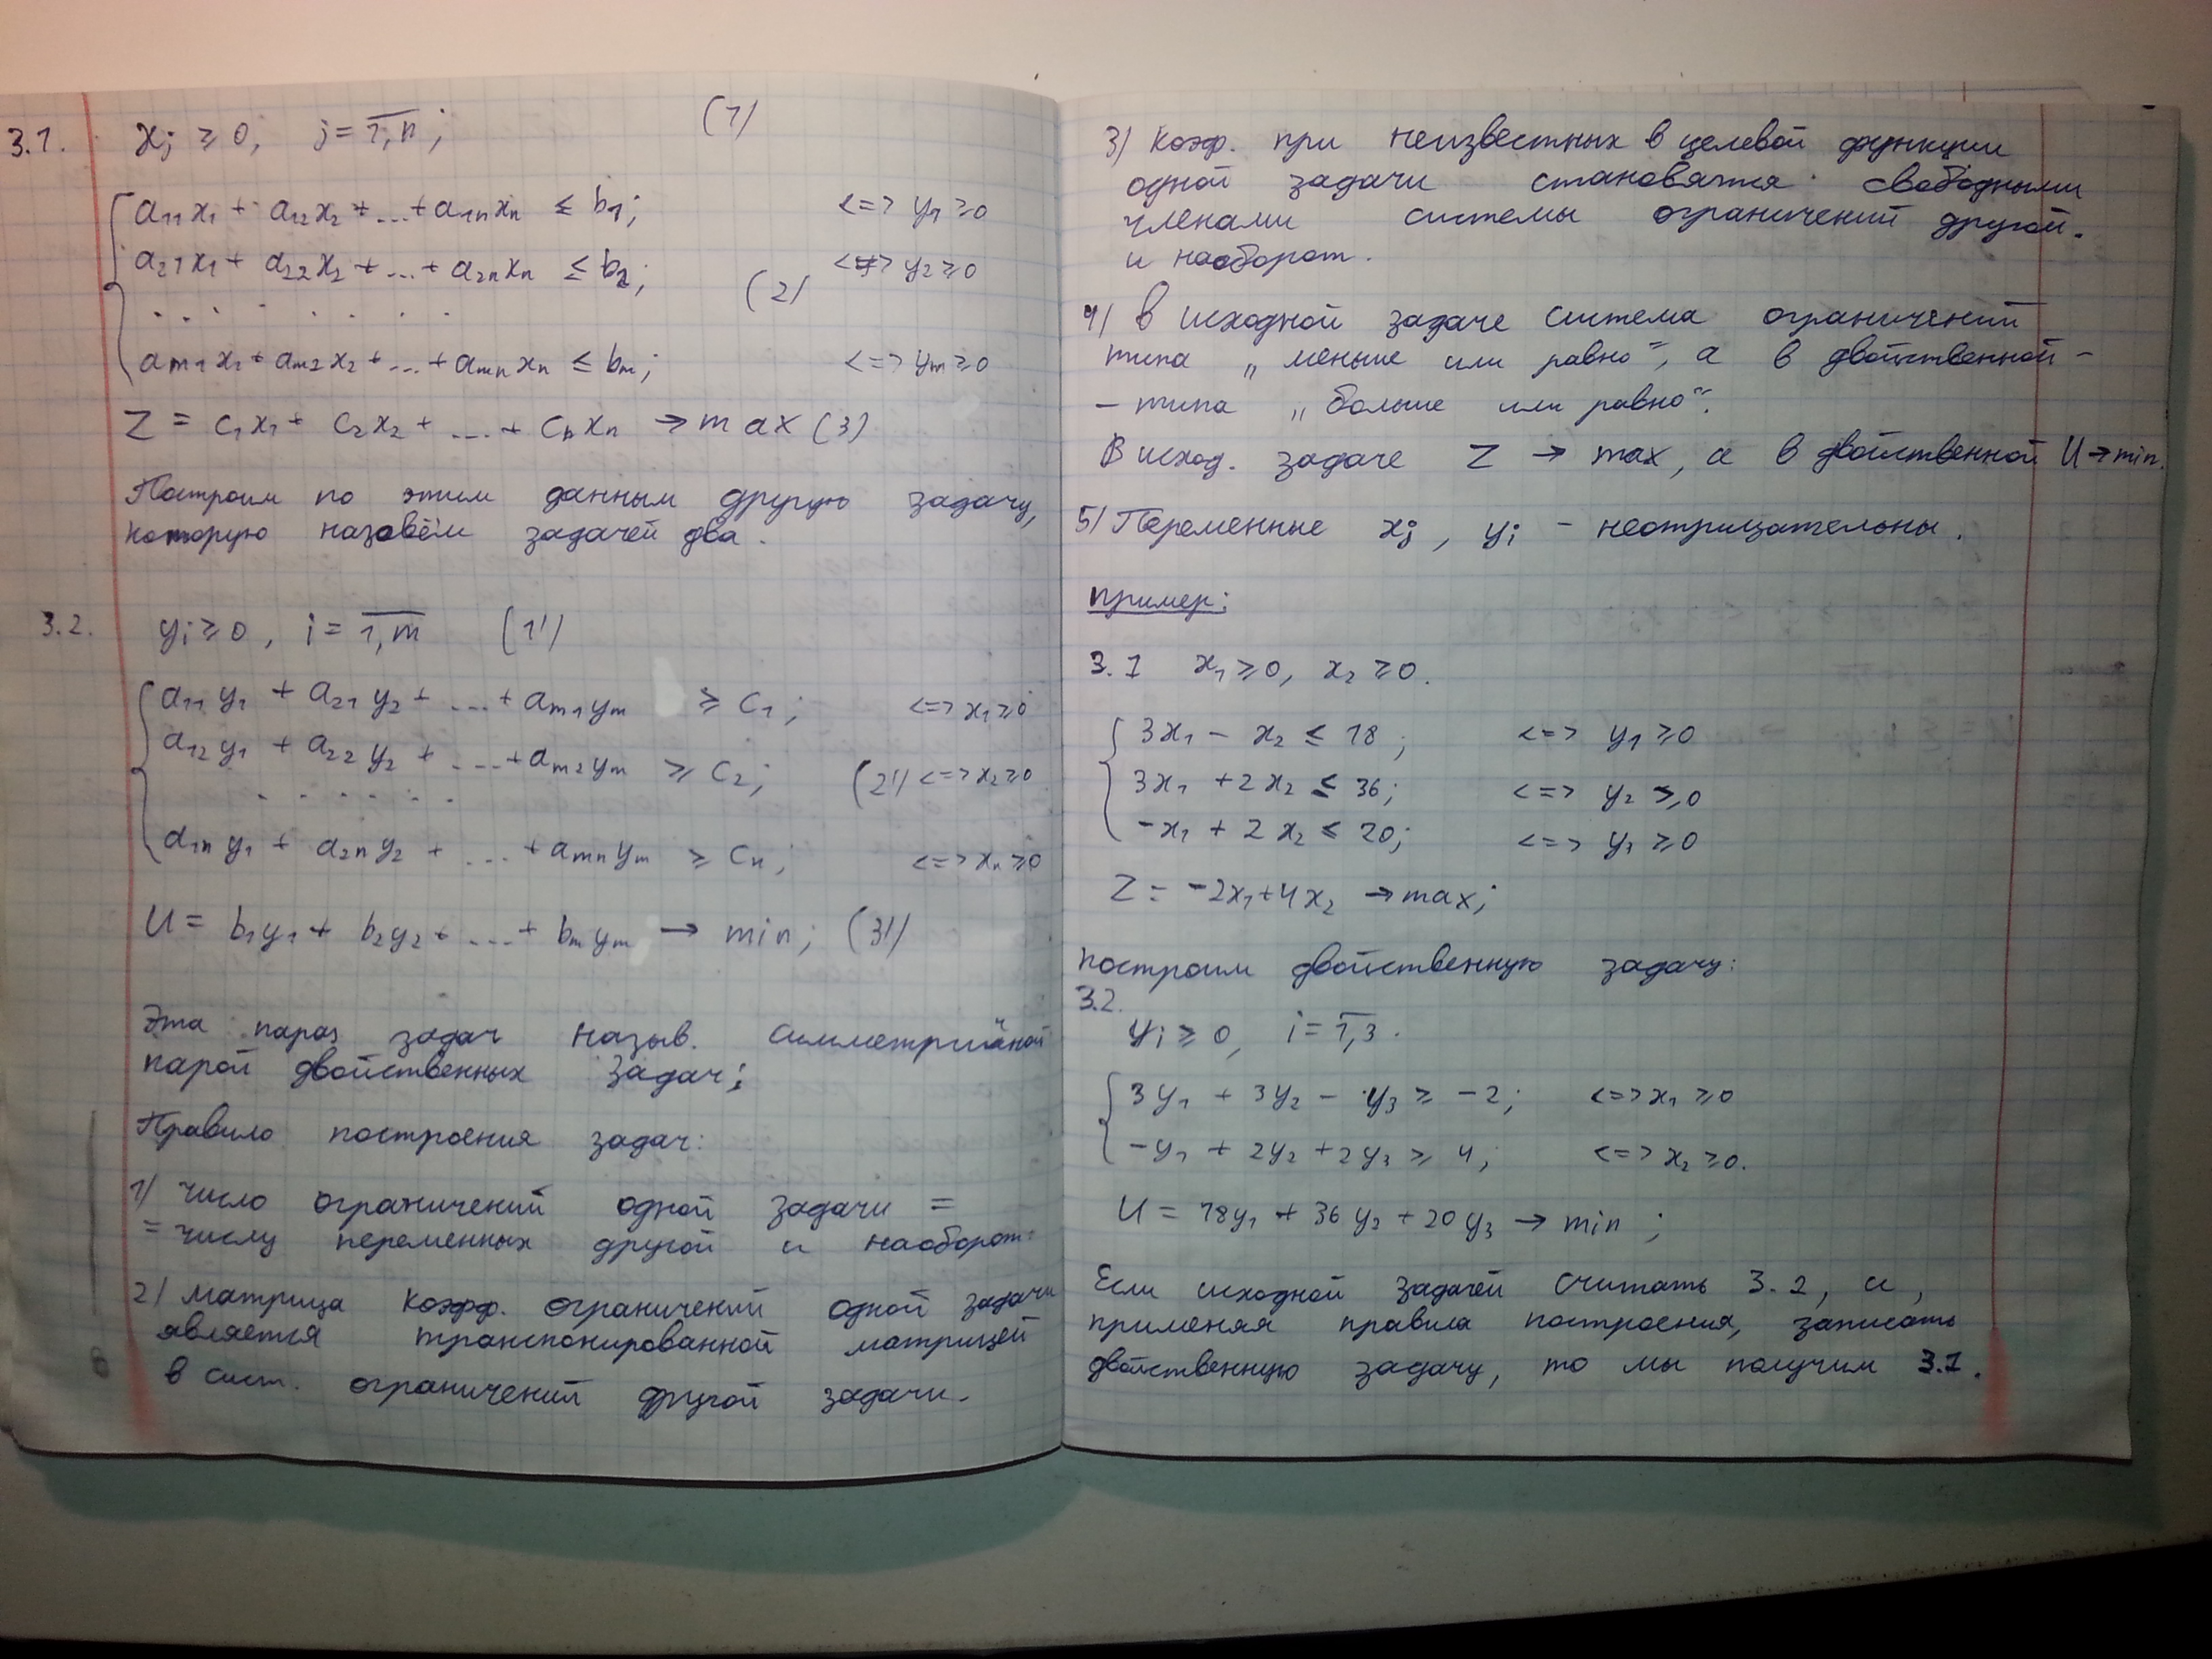 3.1. xⱼ ≥ 0, j = 1,n; (1)
a₁₁x₁ + a₁₂x₂ + ... + a₁ₙxₙ ≤ b₁; <=> y₁ ≥ 0
a₂₁x₁ + a₂₂x₂ + ... + a₂ₙxₙ ≤ b₂; (2) <=> y₂ ≥ 0
. . . . . . .
aₘ₁x₁ + aₘ₂x₂ + ... + aₘₙxₙ ≤ bₘ; <=> yₘ ≥ 0
Z = c₁x₁ + c₂x₂ + ... + cₙxₙ → max (3)
Построим по этим данным другую задачу,
которую назовём задачей два.
3.2. yᵢ ≥ 0, i = 1,m (1')
a₁₁y₁ + a₂₁y₂ + ... + aₘ₁yₘ ≥ c₁; <=> x₁ ≥ 0
a₁₂y₁ + a₂₂y₂ + ... + aₘ₂yₘ ≥ c₂; (2') <=> x₂ ≥ 0
. . . . . .
a₁ₙy₁ + a₂ₙy₂ + ... + aₘₙyₘ ≥ cₙ; <=> xₙ ≥ 0
U = b₁y₁ + b₂y₂ + ... + bₘyₘ → min; (3')
Эта пара задач назыв. симметричной
парой двойственных задач;
Правило построения задач:
1) число ограничений одной задачи =
= числу переменных другой и наоборот.
2) матрица коэфф. ограничений одной задачи
является транспонированной матрицей
в сист. ограничений другой задачи.
3) Коэф. при неизвестных в целевой функции
одной задачи становятся свободными
членами системы ограничений другой.
и наоборот.
4) В исходной задаче система ограничений
типа „меньше или равно", а в двойственной -
- типа „больше или равно".
В исход. задаче Z → max, а в двойственной U → min.
5) Переменные xⱼ, yᵢ - неотрицательны.
Пример:
3.1 x₁ ≥ 0, x₂ ≥ 0.
3x₁ - x₂ ≤ 18; <=> y₁ ≥ 0
3x₁ + 2x₂ ≤ 36; <=> y₂ ≥ 0
-x₁ + 2x₂ ≤ 20; <=> y₃ ≥ 0
Z = -2x₁ + 4x₂ → max;
построим двойственную задачу:
3.2.
yᵢ ≥ 0, i = 1,3.
3y₁ + 3y₂ - y₃ ≥ -2; <=> x₁ ≥ 0
-y₁ + 2y₂ + 2y₃ ≥ 4; <=> x₂ ≥ 0.
U = 18y₁ + 36y₂ + 20y₃ → min;
Если исходной задачей считать 3.2, и,
применяя правила построения, записать
двойственную задачу, то мы получим 3.1.